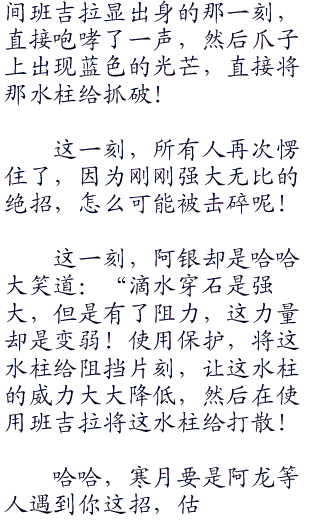 间班吉拉显出身的那一刻，
直接咆哮了一声，然后爪子
上出现蓝色的光芒，直接将
那水柱给抓破！
这一刻，所有人再次愣
住了，因为刚刚强大无比的
绝招，怎么可能被击碎呢！
这一刻，阿银却是哈哈
大笑道：“滴水穿石是强
大，但是有了阻力，这力量
却是变弱！使用保护，将这
水柱给阻挡片刻，让这水柱
的威力大大降低，然后在使
用班吉拉将这水柱给打散！
哈哈，寒月要是阿龙等
人遇到你这招，估